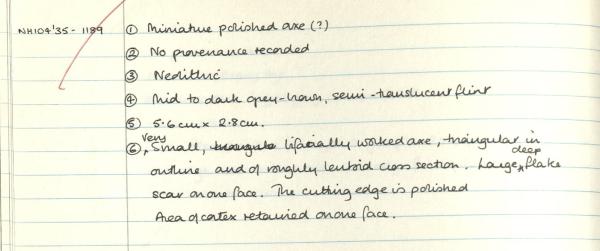 NH104'35 - 1189 ① Miniature polished axe (?)
② No provenance recorded
③ Neolithic
④ Mid to dark grey-brown, semi-translucent flint
⑤ 5.6cm x 2.8cm.
⑥ Very Small, triangula bifacially worked axe, triangular in
outline and of roughly lentoid cross section. Large, deep flake
scar on one face. The cutting edge is polished
Area of cortex retained on one face.